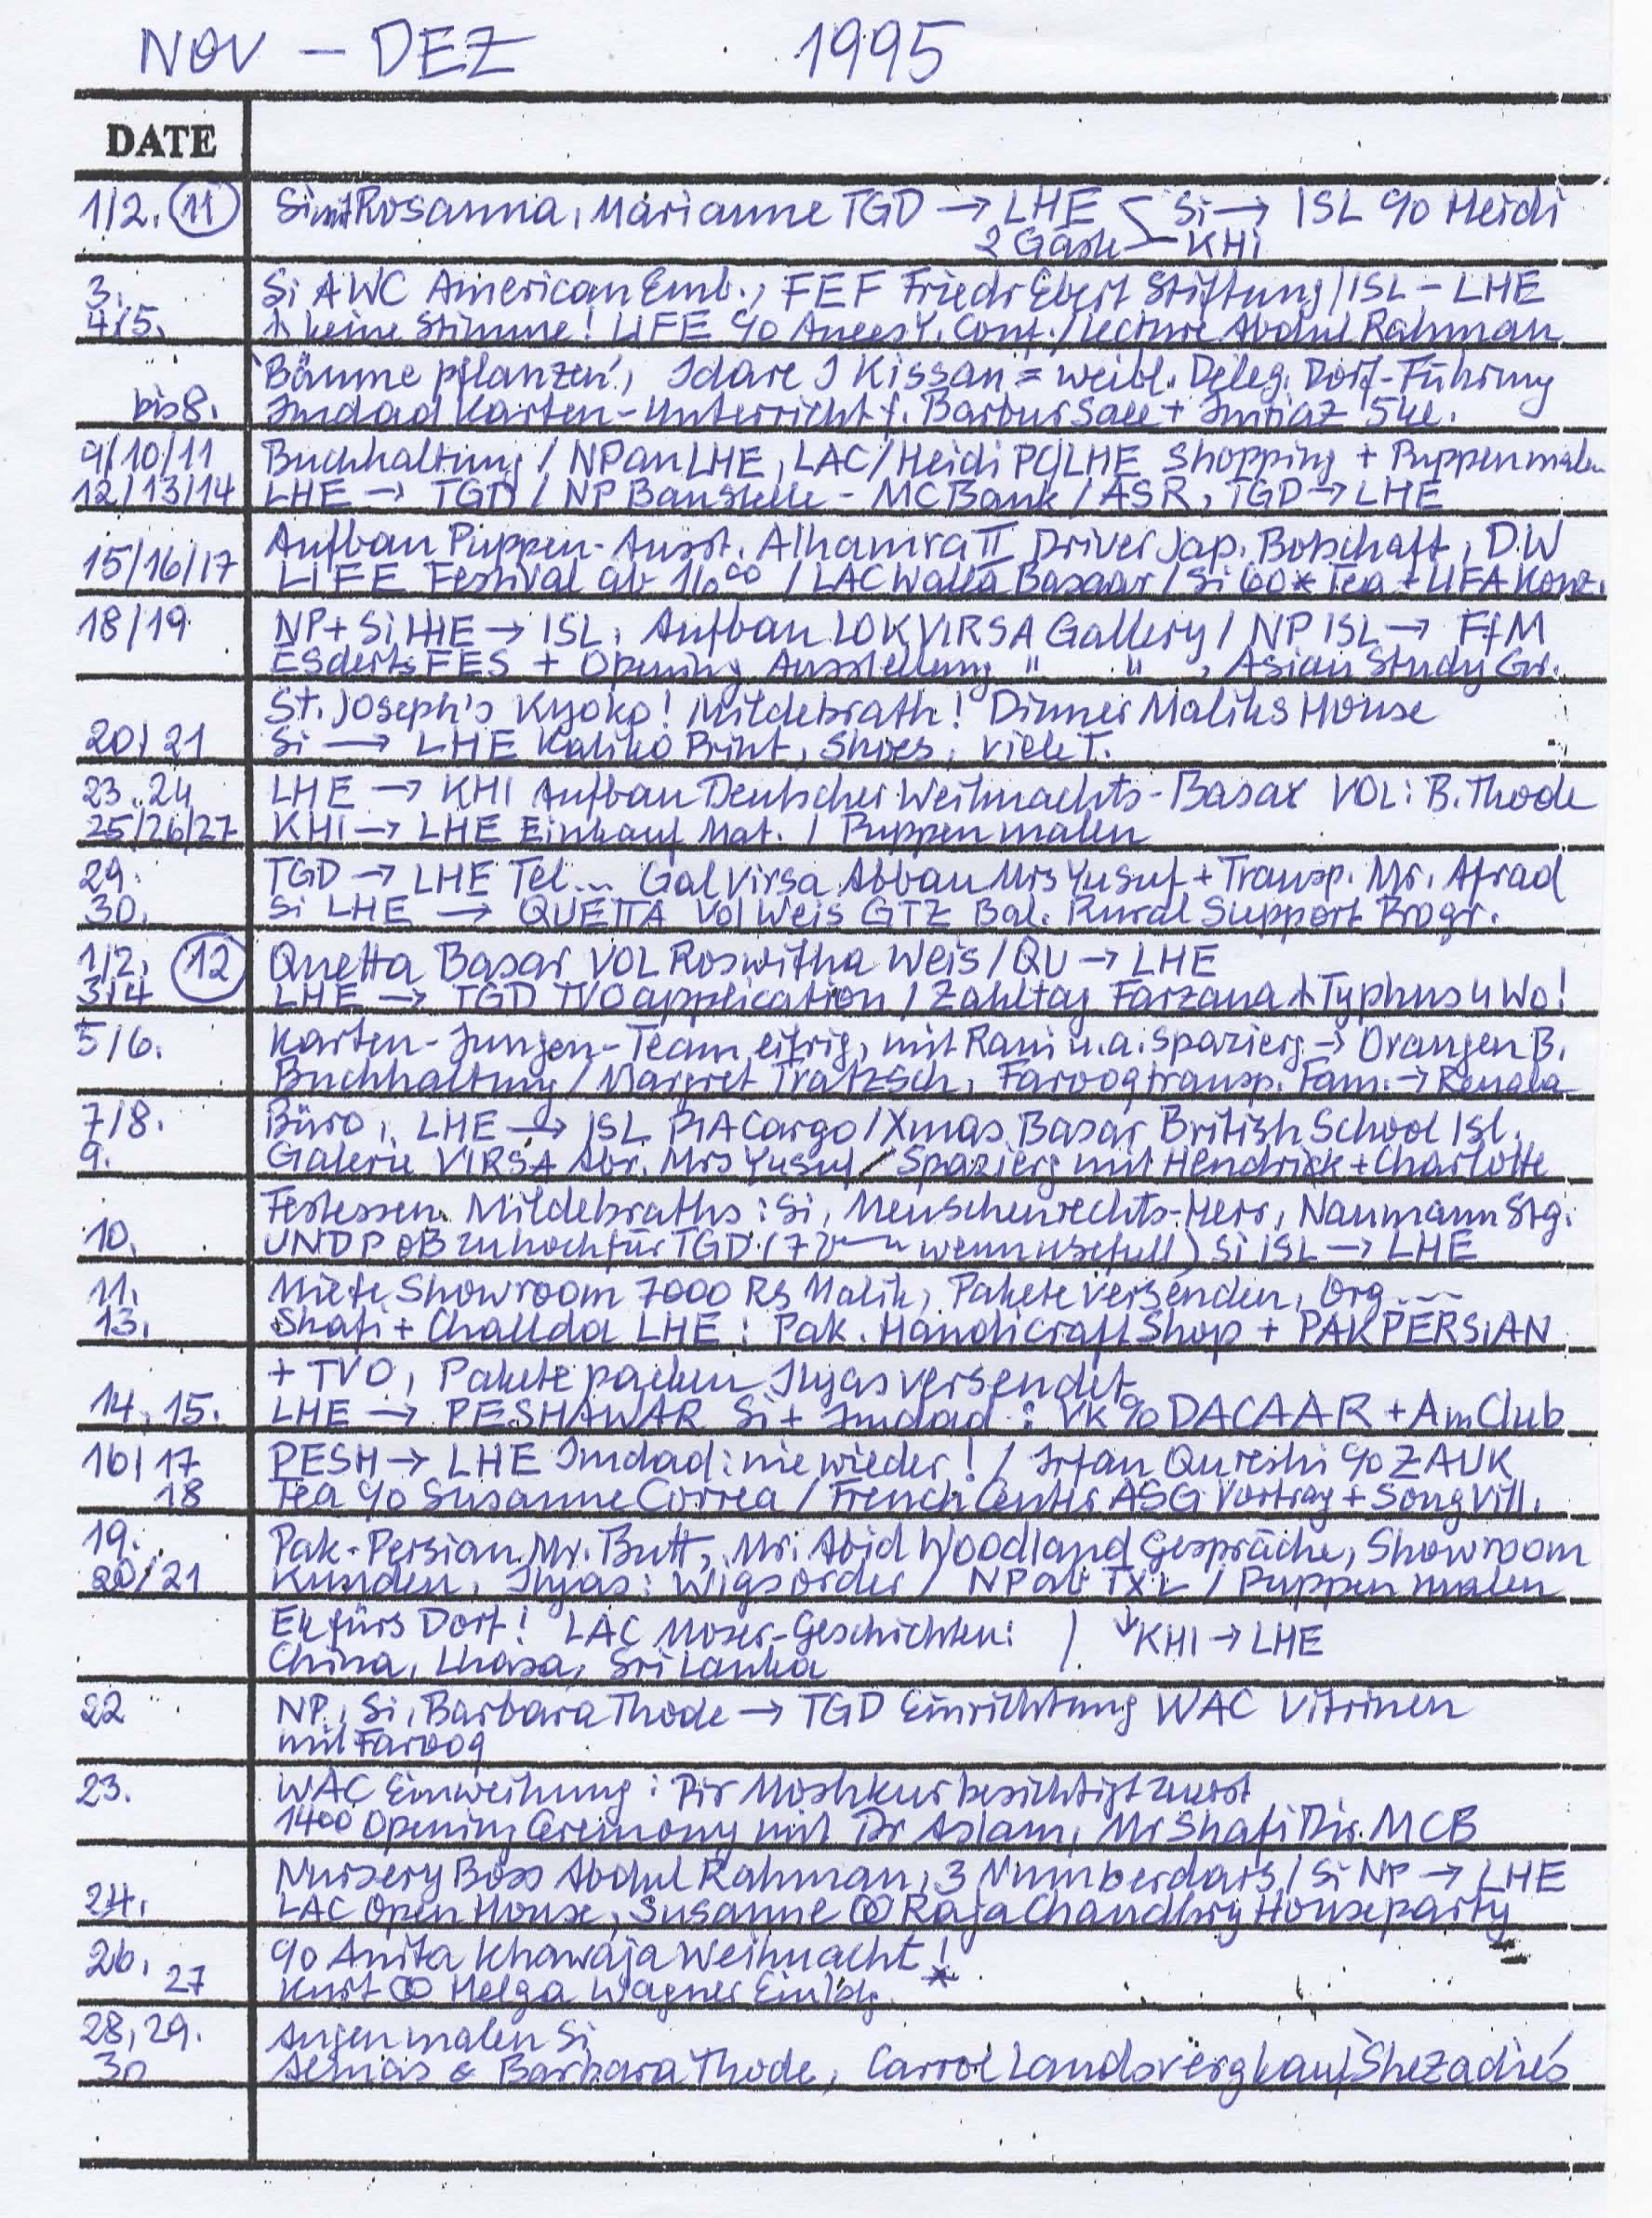 NOV – DEZ 1995
DATE
1/2. 11 Si mit Rosanna, Marianne TGD → LHE < Si → ISL c/o Heidi
2 Gäste – KHI
3. Si AWC American Emb., FEF Friedr Ebert Stiftung / ISL – LHE
4/5. keine Stimme! LIFE c/o Anees Y. Conf. / Lecture Abdul Rahman
'Bäume pflanzen', Idare I Kissan = weibl. Deleg. Dorf-Führung
bis 8. Imdad Karten-Unterricht f. Barbur Sall + Imtiaz
9/10/11 Buchhaltung / NP an LHE, LAC / Heidi PC/LHE Shopping + Puppen malen
12/13/14 LHE → TGD / NP Baustelle – MC Bank / ASR, TGD → LHE
Aufbau Puppen-Ausst. Alhamra II Driver Jap. Botschaft, D.W
15/16/17 LIFE Festival ab 16.00 / LAC Walla Basaar / Si 60 * Tea + LIFA Konz.
18/19 NP + Si LHE → ISL, Aufbau LOK VIRSA Gallery / NP ISL → FfM
FES + Opening Ausstellung " " , Asian Study Gr.
St. Joseph's Kyoko! Mildebrath! Dinner Maliks House
20/21 Si → LHE Kaliko Print, Shoes, viele T.
23..24 LHE → KHI Aufbau Deutscher Weihnachts-Basar VOL: B. Thode
25/26/27 KHI → LHE Einkauf Mat. / Puppen malen
29. TGD → LHE Tel... Gal Virsa Abbau Mrs Yusuf + Transp. Mr. Afrad
30. Si LHE → QUETTA Vol Weis GTZ Bal. Rural Support Progr.
1/2. 12 Quetta Basar VOL Roswitha Weis / QU → LHE
3/4 LHE → TGD TVO application / Zahltag Farzana Typhus 4 Wo!
5/6. Karten-Jungen-Team eifrig, mit Rani u.a. Spazierg → Orangen B.
Buchhaltung / Margret Tratzsch, Farooq transp. Fam. → Renala
7/8. Büro, LHE → ISL PIA Cargo / Xmas Basar British School Isl.
9. Galerie VIRSA Abr. Mrs Yusuf / Spazierg mit Hendrick + Charlotte
Festessen Mildebraths: Si, Menschenrechts-Herr, Naumann Stg.
10. UNDP OB zu hoch für TGD. Si ISL → LHE
11. Miete Showroom 7000 RS Malik, Pakete versenden, Org...
13. Shafi + Challda LHE: Pak. Handicraft Shop + PAKPERSIAN
+ TVO, Pakete packen Ilyas versendet
14. 15. LHE → PESHAWAR Si + Imdad: VK c/o DACAAR + Am Club
16/17 PESH → LHE Imdad: nie wieder! / Irfan Qureshi c/o ZAUK
18 Tea c/o Susanne Correa / French Center ASG Vortrag + Song Vill.
19. Pak-Persian Mr. Butt, Mr. Abid Woodland Gespräche, Showroom
20/21 Kunden, Ilyas: Wigs order / NP ab TXL / Puppen malen
Ek fürs Dorf! LAC Moser-Geschichten: / ↓ KHI → LHE
China, Lhasa, Sri Lanka
22 NP, Si, Barbara Thode → TGD Einrichtung WAC Vitrinen
mit Farooq
23. WAC Einweihung: Pir Moshkur besichtigt zuerst
1400 Opening Ceremony mit Dr Aslam, Mr Shafi Dir. MCB
Nursery Boss Abdul Rahman, 3 Numberdars / Si NP → LHE
24. LAC Open House, Susanne ∞ Raja Chaudhry Houseparty
26. c/o Anita Khawaja Weihnacht!
27 Kurt ∞ Helga Wagner Einldg. *
28, 29. Augen malen Si
30 Almas & Barbara Thode, Carrol Landsverg kauft Shezadies